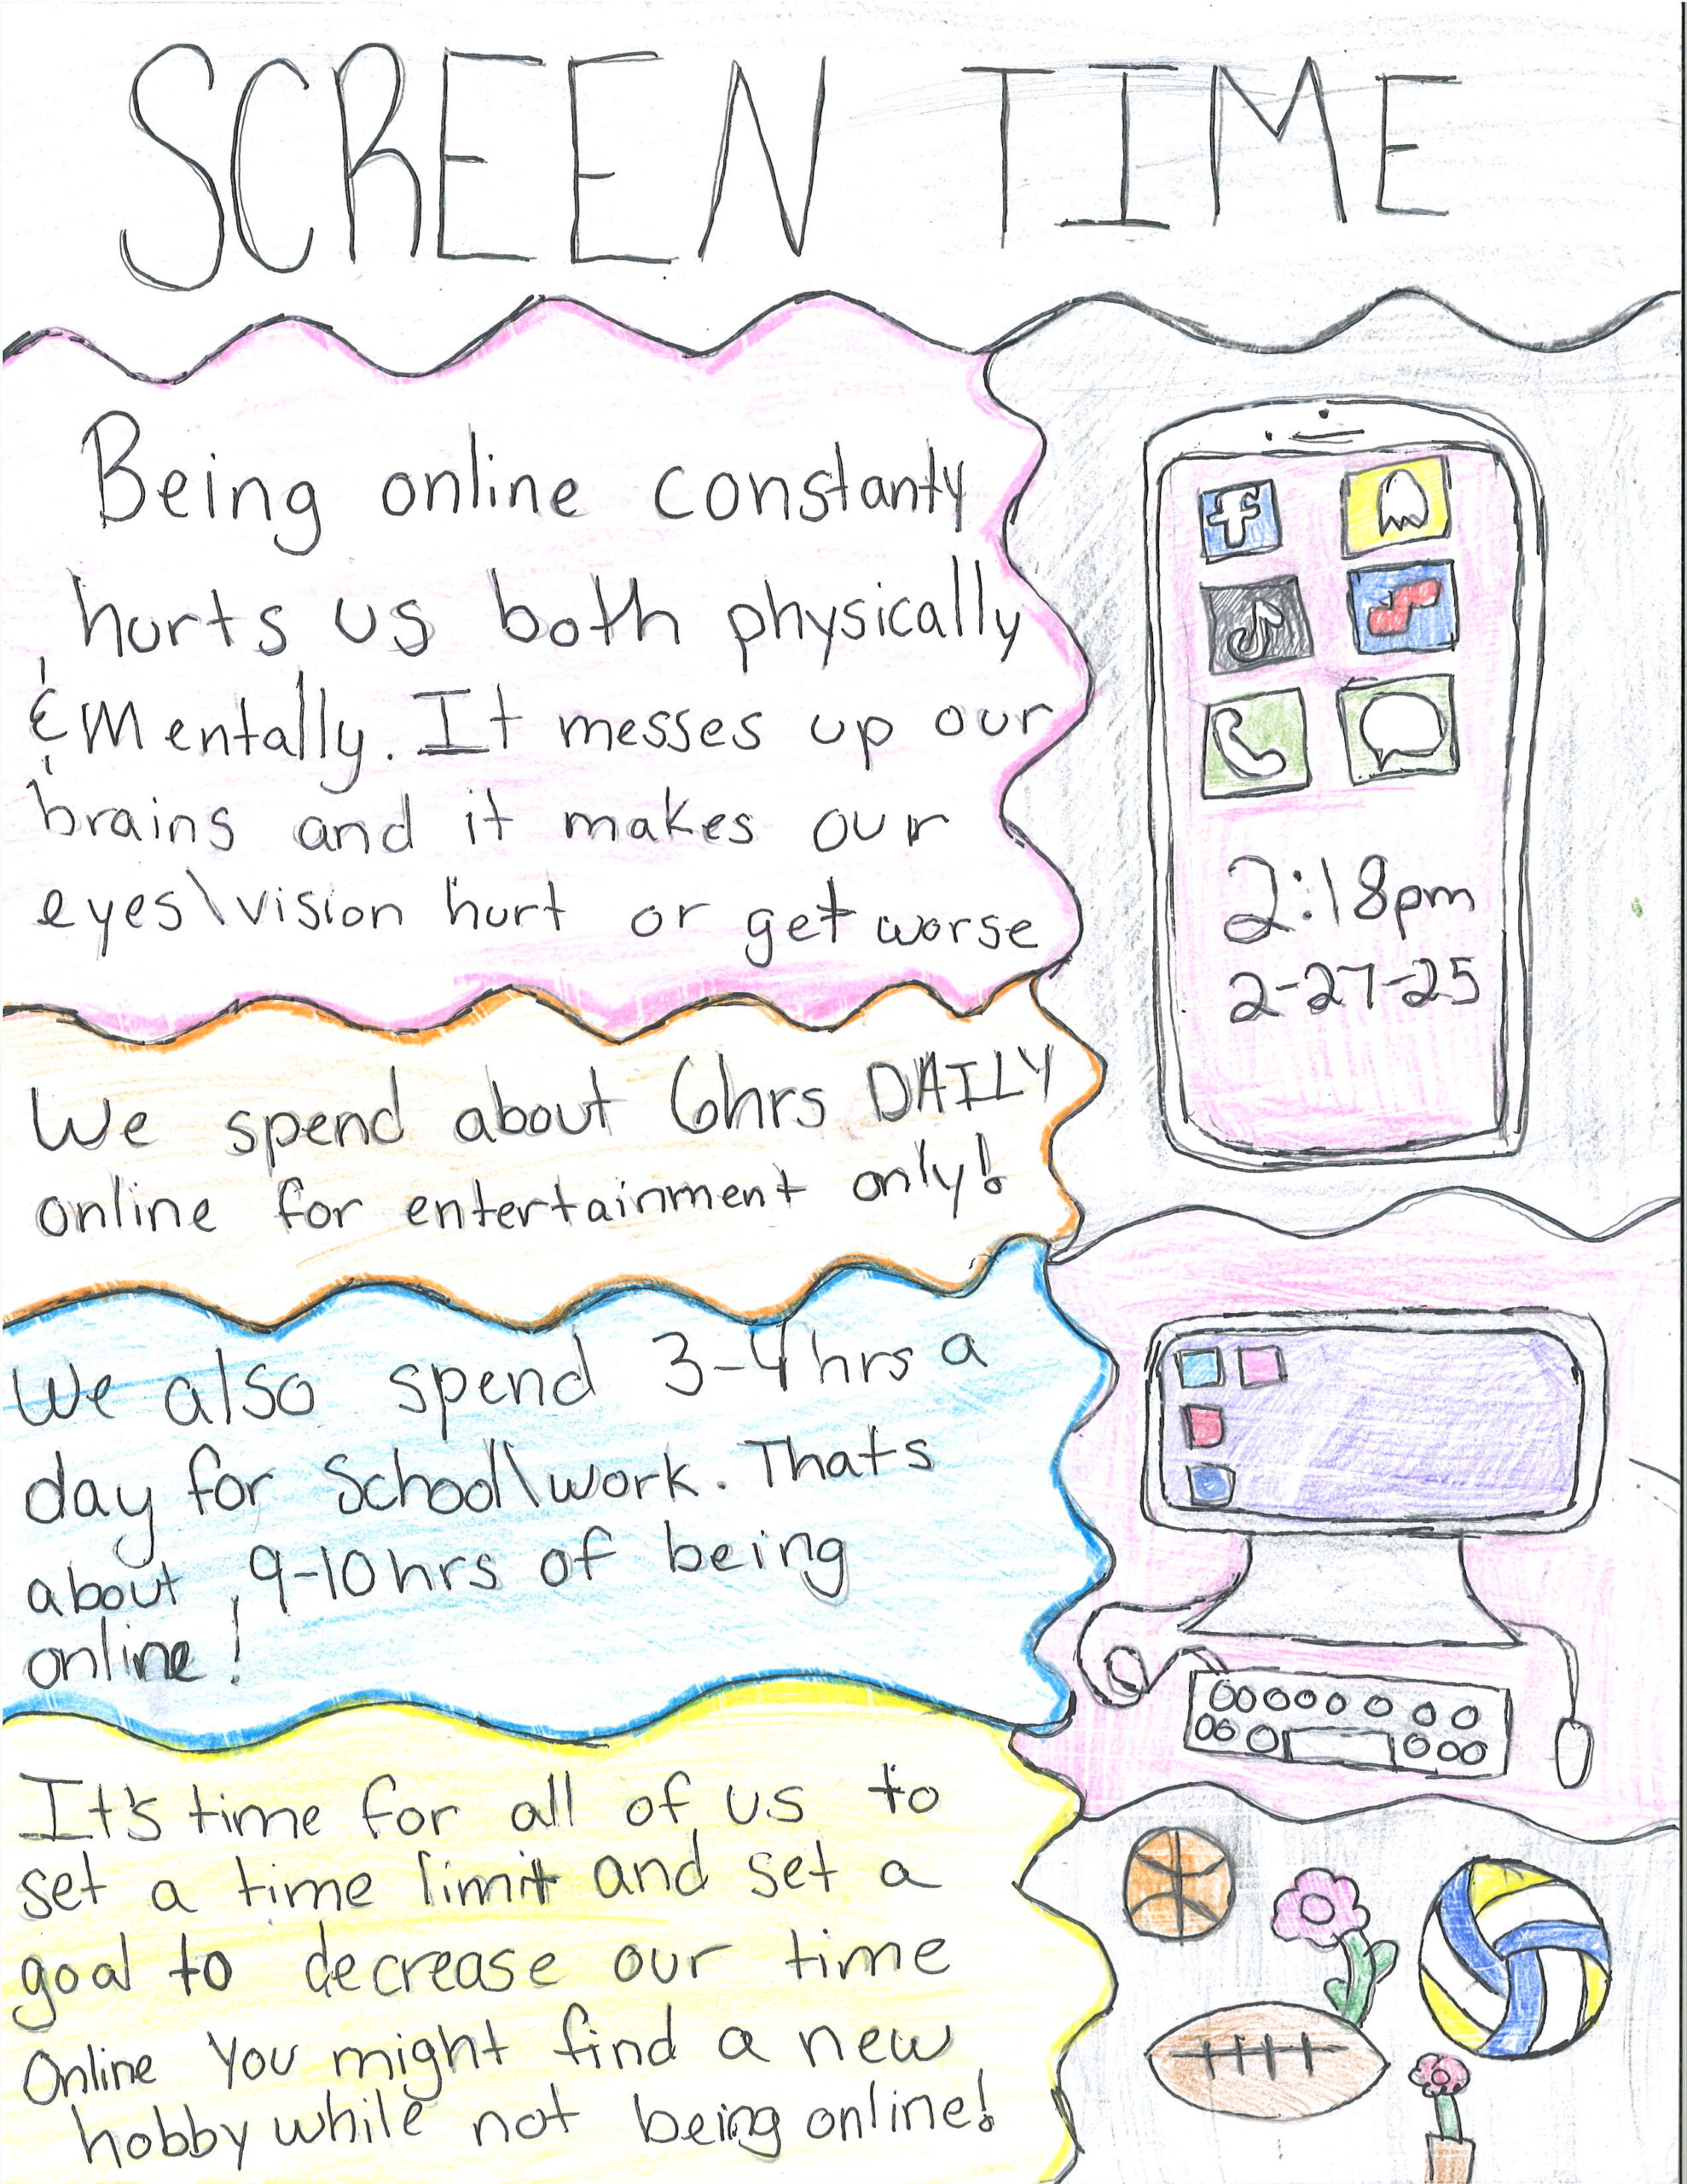 SCREEN TIME
Being online constanty
hurts us both physically
& Mentally. It messes up our
brains and it makes our
eyes\vision hurt or get worse
2:18pm
2-27-25
We spend about 6hrs DAILY
online for entertainment only!
We also spend 3-4hrs a
day for School\work. Thats
about, 9-10hrs of being
online!
It's time for all of us to
set a time limit and set a
goal to decrease our time
Online You might find a new
hobby while not being online!